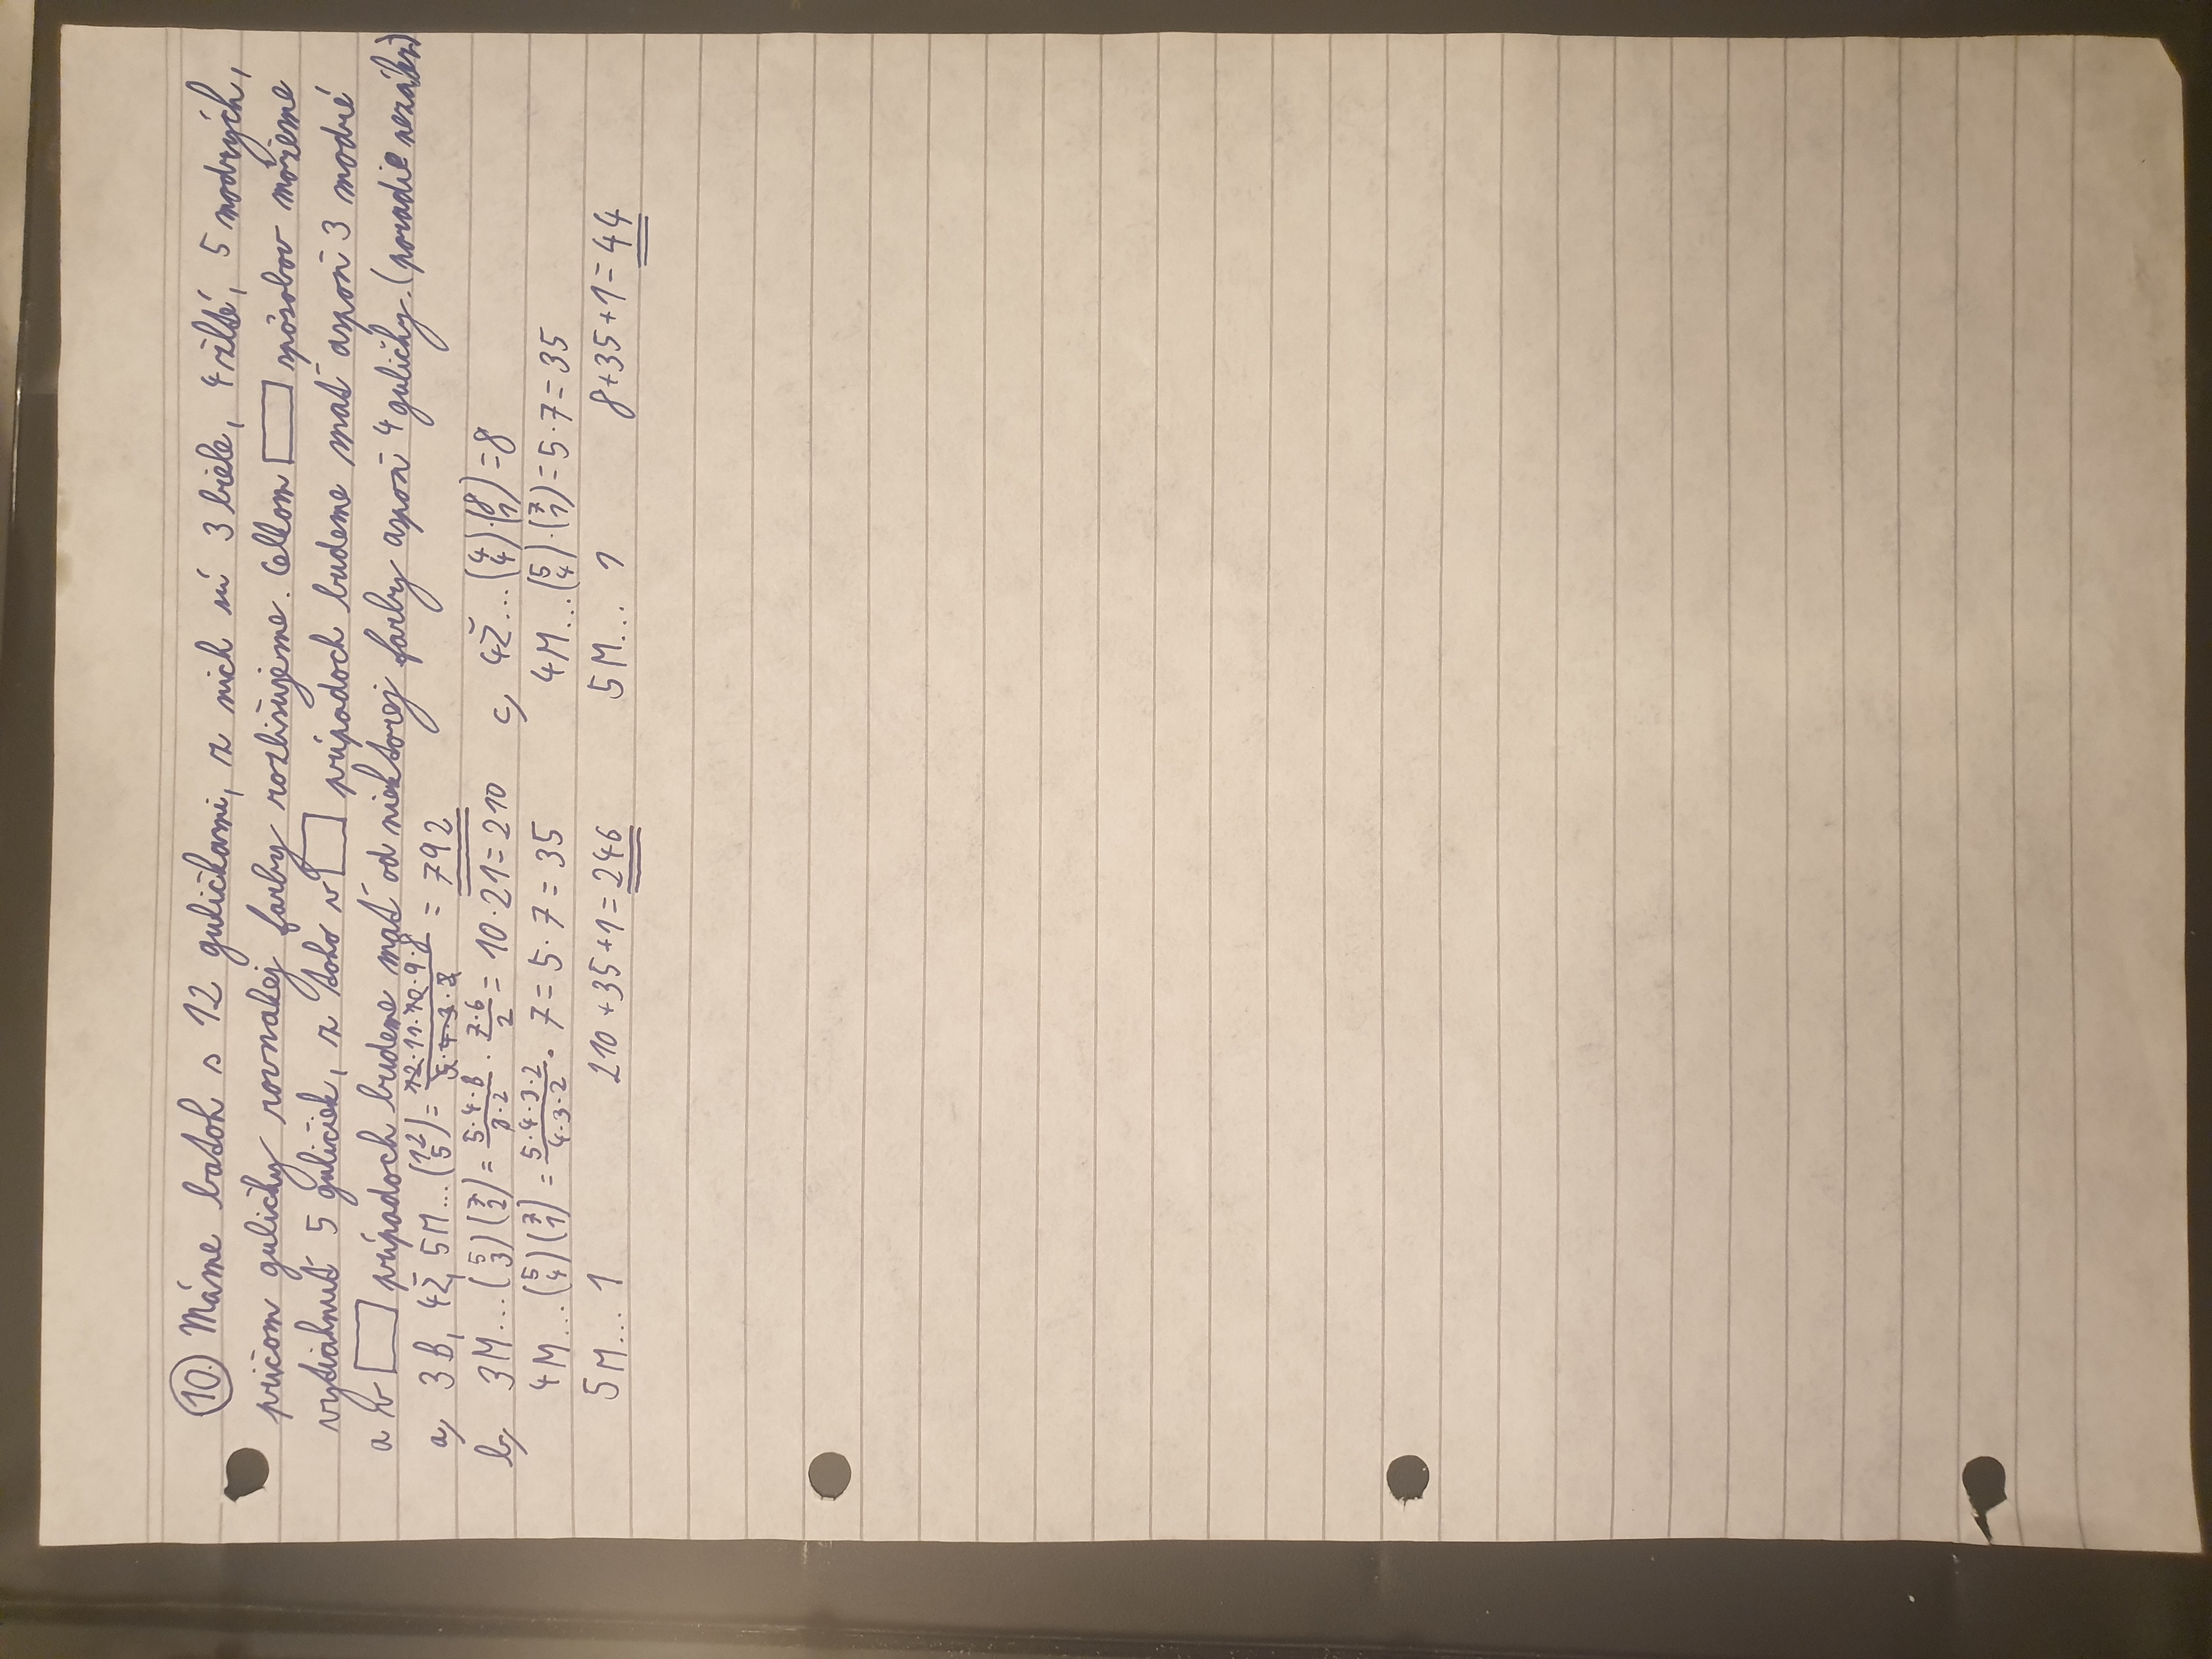 10. Máme batoh s 12 guličkami, z nich sú 3 biele, 4 žlté, 5 modrých,
pričom guličky rovnakej farby rozlišujeme. Celkom □ spôsobov môžeme
vytiahnuť 5 guličiek, z toho v □ prípadoch budeme mať aspoň 3 modré
a v □ prípadoch budeme mať od niektorej farby aspoň 4 guličky. (poradie nezáleží)
a, 3B, 4Ž, 5M... (12 5) = 12·11·10·9·8 / 5·4·3·2 = 792
b, 3M... (5 3)(7 2) = 5·4·3 / 3·2 · 7·6 / 2 = 10·21 = 210
4M... (5 4)(7 1) = 5·4·3·2 / 4·3·2 · 7 = 5·7 = 35
5M... 1 210+35+1 = 246
c, 4Ž... (4 4)·(8 1) = 8
4M... (5 4)·(7 1) = 5·7 = 35
5M... 1 8+35+1 = 44